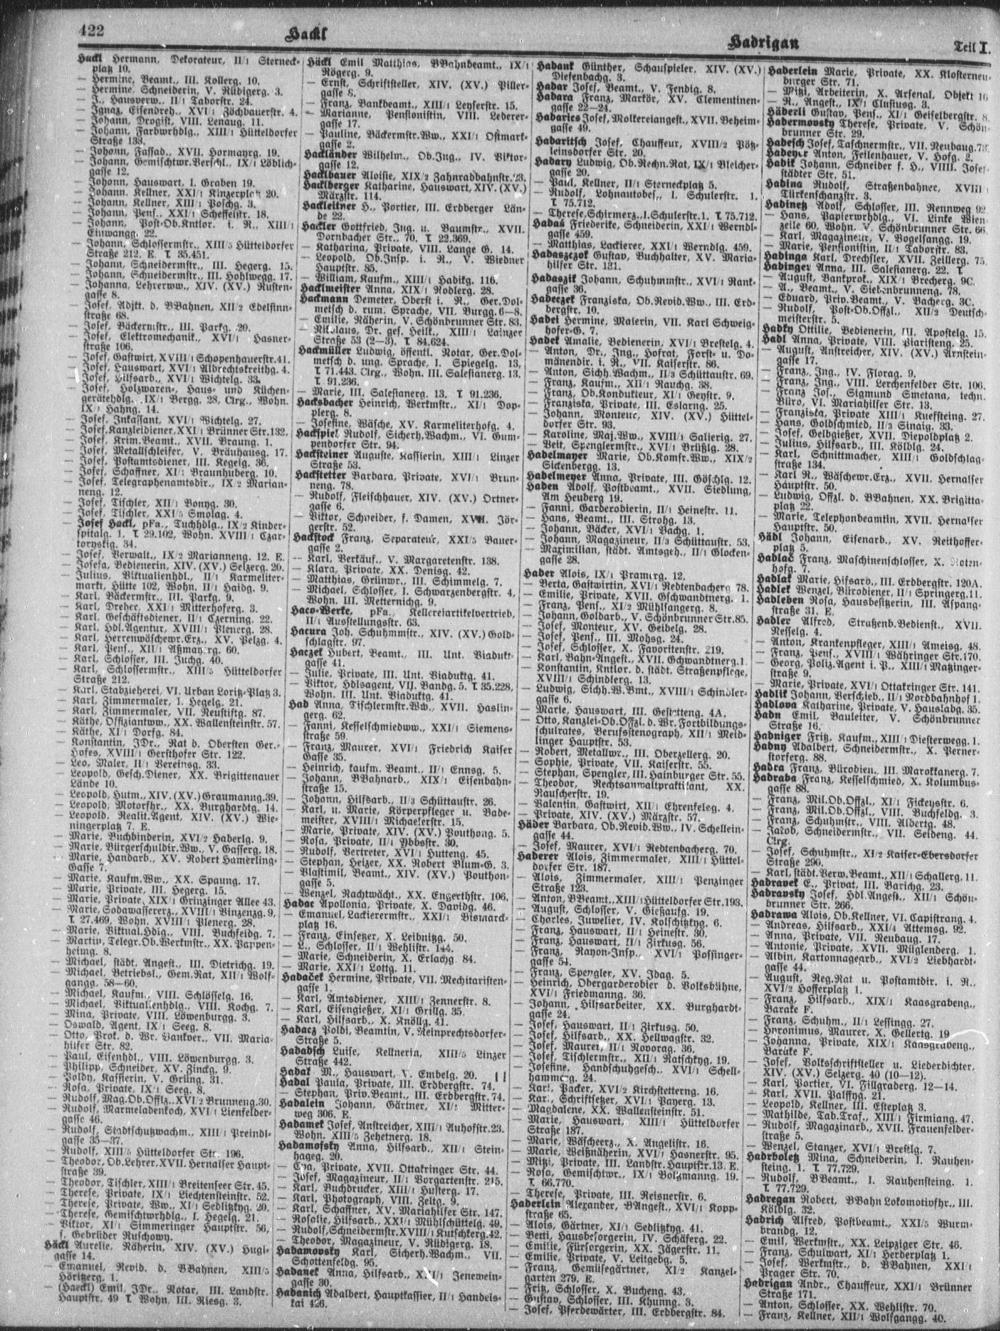 422
Hackl
Hadrigan
Teil I.
Hackl Hermann, Dekorateur, II/1 Sterneck-
platz 10.
— Hermine, Beamt., III. Kollerg. 10.
— Hermine, Schneiderin, V. Rüdigerg. 3.
— J., Hausverw., II/1 Taborstr. 24.
— Johann, Drogist, VIII. Lenaug. 11.
— Johann, Farbwrhdlg., XIII/1 Hütteldorfer
Straße 133.
— Johann, Fassad., XVII. Hormayrg. 19.
gasse 12.
— Johann, Hauswart, I. Graben 19.
— Johann, Kellner, XXI/1 Kinzerplatz 20.
— Johann, Kellner, XIII/1 Poschg. 3.
— Johann, Pens., XXI/1 Scheffelstr. 18.
— Johann, Post-Ob.Kntlor. i. R., XIII/1
Einwangg. 22.
— Johann, Schlossermstr., XIII/5 Hütteldorfer
Straße 212. E. T 35.451.
— Johann, Schneidermstr., III. Hegerg. 15.
— Johann, Schneidermstr., III. Hohlwegg. 17.
— Johanna, Lehrersww., XIV. (XV.) Rusten-
gasse 8.
— Josef, Adjkt. d. BBahnen, XII/2 Edelsinn-
straße 68.
— Josef, Bäckermstr., III. Parkg. 20.
— Josef, Elektromechanik., XVI/1 Hasner-
straße 106.
— Josef, Gastwirt, XVIII/1 Schopenhauerstr. 41.
— Josef, Hauswart, XVI/1 Albrechtskreithg. 4.
— Josef, Hilfsarb., XVI/1 Wichtelg. 33.
— Josef, Holzwaren-, Haus- und Küchen-
gerätehdlg., IX/1 Bergg. 28, Clrg., Wohn.
IX/1 Hahng. 14.
— Josef, Inkassant, XVI/1 Wichtelg. 27.
— Josef, Kanzleidiener, XXI/1 Brünner Str. 132.
— Josef, Krim.Beamt., XVII. Braung. 1.
— Josef, Metallschleifer, V. Bräuhausg. 17.
— Josef, Postamtsdiener, III. Kegelg. 36.
— Josef, Schaffner, XI/1 Braunhuberg. 10.
— Josef, Telegraphenamtsdir., IX/2 Marian-
neng. 12.
— Josef, Tischler, XII/1 Bonyg. 30.
— Josef, Tischler, XXI/5 Smolag. 4.
— Josef Hackl, pFa., Tuchhdlg., IX/2 Kinder-
spitalg. 1. T 29.102, Wohn. XVIII/1 Czar-
toryskig. 34.
— Josef, Verwalt., IX/2 Marianneng. 12. E.
— Josefa, Bedienerin, XIV. (XV.) Selzerg. 20.
— Julius, Viktualienhdl., II/1 Karmeliter-
markt, Hütte 102, Wohn. II/1 Haidg. 9.
— Karl, Bäckermstr., III. Parkg. 9.
— Karl, Dreher, XXI/1 Mitterhoferg. 3.
— Karl, Geschäftsdiener, II/1 Czerning. 22.
— Karl, Hdl.Agentur, XVIII/1 Plenerg. 28.
— Karl, Herrenwäschew.Erz., XV. Pelzg. 4.
— Karl, Pens., XII/1 Aßmayerg. 60.
— Karl, Schlosser, III. Juchg. 40.
— Karl, Schlossermstr., XIII/5 Hütteldorfer
Straße 212.
— Karl, Stabzieherei, VI. Urban Loritz-Platz 3.
— Karl, Zimmermaler, I. Hegelg. 21.
— Karl, Zimmermaler, VII. Neustiftg. 87.
— Käthe, Offiziantww., XX. Wallensteinstr. 57.
— Käthe, XI/1 Dorfg. 84.
— Konstantin, JDr., Rat d. Obersten Ger.-
Hofes, XVIII/1 Gersthofer Str. 122.
— Leo, Maler, II/1 Vereinsg. 33.
— Leopold, Gesch.Diener, XX. Brigittenauer
Lände 10.
— Leopold, Hutm., XIV. (XV.) Graumanng. 39.
— Leopold, Motorfhr., XX. Burghardtg. 14.
— Leopold, Realit.Agent, XIV. (XV.) Wie-
ningerplatz 7. E.
— Marie, Buchbinderin, XVI/2 Haberlg. 9.
— Marie, Bürgerschuldir.Ww., V. Gasserg. 18.
— Marie, Handarb., XV. Robert Hamerling-
Gasse 7.
— Marie, Kaufm.Ww., XX. Spaung. 17.
— Marie, Private, III. Hegerg. 15.
— Marie, Private, XIX/1 Grinzinger Allee 43.
T 27.469, Wohn. XVIII/1 Plenerg. 28.
— Marie, Viktual.Hdlg., VIII. Buchfeldg. 7.
— Martin, Telegr.Ob.Werkmstr., XX. Pappen-
heimg. 8.
— Michael, städt. Angest., III. Dietrichg. 19.
— Michael, Betriebsl., Gem.Rat, XII/1 Wolf-
gangg. 58—60.
— Michael, Kaufm., VIII. Schlösselg. 16.
— Michael, Viktualienhdlg., VIII. Kochg. 7.
— Mina, Private, VIII. Löwenburgg. 3.
— Oswald, Agent, IX/1 Seeg. 8.
— Otto, Prok. d. Wr. Bankver., VII. Maria-
hilfer Str. 82.
— Paul, Eisenhdl., VIII. Löwenburgg. 3.
— Philipp, Schneider, XV. Zinckg. 9.
— Poldy, Kassierin, V. Grüng. 31.
— Rosa, Private, IX/1 Seeg. 8.
— Rudolf, Mag.Ob.Offzl., XVI/2 Brunneng. 30.
— Rudolf, Marmeladenkoch, XVI/1 Lienfelder-
gasse 46.
— Rudolf, Stadtschutzwachm., XIII/1 Preindl-
gasse 35—37.
— Rudolf, XIII/5 Hütteldorfer Str. 196.
— Theodor, Ob.Lehrer, XVII. Hernalser Haupt-
straße 39.
— Theodor, Tischler, XIII/1 Breitenseer Str. 45.
— Therese, Private, IX/1 Liechtensteinstr. 52.
— Therese, Private, Ww., XI/1 Sedlitzkyg. 20.
— Therese, Gemischtwrhdlg., I. Hegelg. 21.
— Viktor, XI/1 Simmeringer Hauptstr. 56,
s. Gebrüder Ruschowy.
Häckl Aurelie, Näherin, XIV. (XV.) Hugl-
gasse 14.
— Emanuel, Revid. d. BBahnen, XIII/5
Höritzerg. 1.
— (Haeckl) Emil, JDr., Notar, III. Landstr.
Hauptstr. 49 T, Wohn. III. Riesg. 3.
Häckl Emil Matthias, BBahnbeamt., IX/1
Rögerg. 9.
— Ernst, Schriftsteller, XIV. (XV.) Piller-
gasse 8.
— Franz, Bankbeamt., XIII/1 Leyserstr. 15.
— Marianne, Pensionistin, VIII. Lederer-
gasse 17.
— Pauline, Bäckermstr.Ww., XXI/1 Ostmark-
gasse 2.
Hackländer Wilhelm, Ob.Ing., IV. Viktor-
gasse 12.
Hacklbauer Aloisie, XIX/2 Zahnradbahnstr. 23.
Hacklberger Katharine, Hauswart, XIV. (XV.)
Märzstr. 114.
Hackleitner H., Portier, III. Erdberger Län-
de 22.
Hackler Gottfried, Ing. u. Baumstr., XVII.
Dornbacher Str., 70, T 22.369.
— Katharina, Private, VIII. Lange G. 14.
— Leopold, Ob.Insp. i. R., V. Wiedner
Hauptstr. 85.
— William, Kaufm., XIII/1 Hadikg. 116.
Hacklmeister Anna, XIX/1 Roblerg. 28.
Hackmann Demeter, Oberst i. R., Ger.Dol-
metsch d. rum. Sprache, VII. Burgg. 6—8.
— Emilie, Näherin, V. Schönbrunner Str. 83.
— Nikolaus, Dr. ges. Heilk., XIII/1 Lainzer
Straße 53 (2—3), T 84.624.
Hackmüller Ludwig, öffentl. Notar, Ger.Dol-
metsch d. ung. Sprache, I. Spiegelg. 13,
T 71.443. Clrg., Wohn. III. Salesianerg. 13,
T 91.236.
— Marie, III. Salesianerg. 13. T 91.236.
Hacksbacher Heinrich, Werkmstr., XI/1 Dop-
plerg. 8.
— Josefine, Wäsche, XV. Karmeliterhofg. 4.
Hackspiel Rudolf, Sicherh.Wachm., VI. Gum-
pendorfer Str. 94.
Hacksteiner Auguste, Kassierin, XIII/1 Linzer
Straße 53.
Hackstetter Barbara, Private, XVI/1 Brun-
neng. 78.
— Rudolf, Fleischhauer, XIV. (XV.) Ortner-
gasse 6.
— Viktor, Schneider, f. Damen, XVII. Jör-
gerstr. 52.
Hackstock Franz, Separateur, XXI/5 Bauer-
gasse 2.
— Karl, Verkäuf., V. Margaretenstr. 138.
— Klara, Private, XX. Denisg. 42.
— Matthias, Grünwr., III. Schimmelg. 7.
— Michael, Schlosser, I. Schwarzenbergstr. 4,
Wohn. III. Metternichg. 9.
Haco-Werke, pFa., Kellereiartikelvertrieb,
II/1 Ausstellungsstr. 63.
Hacura Joh. Schuhmstr., XIV. (XV.) Gold-
schlagstr. 97.
Haczek Hubert, Beamt., III. Unt. Viadukt-
gasse 41.
— Julie, Private, III. Unt. Viaduktg. 41.
— Viktor, Hdlsagent, VII. Bandg. 5. T 35.228,
Wohn. III. Unt. Viaduktg. 41.
Had Anna, Tischlermstr.Ww., XVII. Haslin-
gerg. 62.
— Fanni, Kesselschmiedww., XXI/1 Siemens-
straße 59.
— Franz, Maurer, XVI/1 Friedrich Kaiser
Gasse 35.
— Heinrich, kaufm. Beamt., II/1 Ennsg. 5.
— Johann, BBahnarb., XIX/1 Eisenbahn-
straße 15.
— Johann, Hilfsarb., II/3 Schüttaustr. 26.
— Karl, u. Marie, Körperpfleger u. Bade-
meister, XVIII/1 Michaelerstr. 15.
— Marie, Private, XIV. (XV.) Pouthong. 5.
— Rosa, Private, II/1 Ybbsstr. 30.
— Rudolf, Vertreter, XVI/1 Hutteng. 45.
— Stephan, Heizer, XX. Robert Blum-G. 3.
— Vlastimil, Beamt., XIV. (XV.) Pouthon-
gasse 5.
— Wenzel, Nachtwächt., XX. Engerthstr. 106.
Hadac Apollonia, Private, X. Davidg. 46.
— Emanuel, Lackierermstr., XXI/1 Bismarck-
platz 16.
— Franz, Einsetzer, X. Leibnitzg. 50.
— L., Schlosser, II/1 Wehlistr. 144.
— Marie, Schneiderin, X. Erlachg. 84.
— Marie, XXI/1 Lottg. 11.
Hadaček Hermine, Private, VII. Mechitaristen-
gasse 1.
— Karl, Amtsdiener, XIII/1 Zennerstr. 8.
— Karl, Eisengießer, XI/1 Grillg. 35.
— Karl, Hilfsarb., X. Knöllg. 41.
Hadacz Poldi, Beamtin, V. Reinprechtsdorfer-
Straße 5.
Hadadsch Luise, Kellnerin, XIII/5 Linzer
Straße 442.
Hadak M., Hauswart, V. Embelg. 20.
Hadal Paula, Private, III. Erdbergstr. 74.
— Stephan, Priv.Beamt., III. Erdbergstr. 74.
Hadalein Johann, Gärtner, XI/2 Mitter-
weg 306. E.
Hadamek Josef, Anstreicher, XIII/1 Auhofstr. 23.
Wohn. XIII/5 Zehetnerg. 18.
Hadamofsky Anna, Hilfsarb., XII/1 Stein-
hageg. 20.
— Eva, Private, XVII. Ottakringer Str. 44.
— Josef, Magazineur, II/1 Vorgartenstr. 215.
— Karl, Buchdrucker, XIII/1 Husterg. 17.
— Karl, Photograph, VIII. Zeltg. 9.
— Karl, Schaffner, XV. Mariahilfer Str. 147.
— Rosalie, Hilfsarb., XXI/1 Mühlschüttelg. 49.
— Rudolf, Schneidermstr., XVIII/1 Kutschkerg. 42.
— Theodor, Magazineur, V. Rüdigerg. 18.
Hadamovsky Karl, Sicherh.Wachm., VII.
Schottenfeldg. 95.
Hadanek Anna, Hilfsarb., XX/1 Jenewein-
gasse 30.
Hadanich Adalbert, Hauptkassier, II/1 Handels-
kai 426.
Hadank Günther, Schauspieler, XIV. (XV.)
Diefenbachg. 3.
Hadar Josef, Beamt., V. Fendig. 8.
Hadara Franz, Markör, XV. Clementinen-
gasse 22—24.
Hadaries Josef, Molkereiangest., XVII. Beheim-
gasse 49.
Hadaritsch Josef, Chauffeur, XVIII/2 Pötz-
leinsdorfer Str. 20.
Hadary Ludwig, Ob.Rechn.Rat, IX/1 Bleicher-
gasse 20.
— Paul, Kellner, II/1 Sterneckplatz 5.
— Rudolf, Lohnautobes., I. Schulerstr. 1.
T 75.712.
— Therese, Schirmerz., I. Schulerstr. 1. T 75.712.
Hadas Friederike, Schneiderin, XXI/1 Werndl-
gasse 459.
— Matthias, Lackierer, XXI/1 Werndlg. 459.
Hadaszczok Gustav, Buchhalter, XV. Maria-
hilfer Str. 131.
Hadaszik Johann, Schuhmstr., XVI/1 Rank-
gasse 36.
Hadeczek Franziska, Ob.Revid.Ww., III. Erd-
bergstr. 10.
Hadei Hermine, Malerin, VII. Karl Schweig-
hofer-G. 7.
Hadek Amalie, Bedienerin, XVI/1 Brestelg. 4.
— Anton, Dr., Ing., Hofrat, Forst- u. Do-
mänendir. i. R., VII. Kaiserstr. 86.
— Anton, Sich.Wachm., II/3 Schüttaustr. 69.
— Franz, Kaufm., XII/1 Rauchg. 38.
— Franz, Ob.Kondukteur, XI/1 Geystr. 9.
— Franziska, Private, III. Eslarng. 25.
— Johann, Monteur, XIV. (XV.) Hüttel-
dorfer Str. 93.
— Karoline, Maj.Ww., XVIII/1 Salierig. 27.
— Veit, Spenglermstr., XVI/1 Brüßlg. 28.
Hadelmayer Marie, Ob.Komsr.Ww., XIX/2
Sickenbergg. 13.
Hadelmeyer Anna, Private, III. Göschlg. 12.
Haden Adolf, Postbeamt., XVII. Siedlung,
Am Heuberg 19.
— Fanni, Garderobierin, II/1 Heinestr. 11.
— Hans, Beamt., III. Strohg. 13.
— Johann, Bäcker, XVI/1 Bachg. 1.
— Johann, Magazineur, II/3 Schüttaustr. 53.
— Maximilian, städt. Amtsgeh., II/1 Glocken-
gasse 28.
Hader Alois, IX/1 Pramerg. 12.
— Berta, Gastwirtin, XVI/1 Redtenbacherg. 78.
— Emilie, Private, XVII. Gschwandtnerg. 1.
— Franz, Pens., XI/2 Mühlsangerg. 8.
— Johann, Goldarb., V. Schönbrunner Str. 85.
— Josef, Monteur, XV. Geibelg. 28.
— Josef, Pens., III. Mohsg. 24.
— Josef, Schlosser, X. Favoritenstr. 219.
— Karl, Bahn-Angest., XVII. Gschwandtnerg. 1.
— Konstantin, Kntlor. d. städt. Straßenpflege,
XVIII/1 Schindlerg. 13.
— Ludwig, Sichh.W.Bmt., XVIII/1 Schindler-
gasse 6.
— Marie, Hauswart, III. Gestetteng. 4A.
— Otto, Kanzlei-Ob.Offzl. d. Wr. Fortbildungs-
schulrates, Berufsstenograph, XII/1 Meid-
linger Hauptstr. 53.
— Robert, Metallwr., III. Oberzellerg. 20.
— Sophie, Private, VII. Kaiserstr. 55.
— Stephan, Spengler, III. Hainburger Str. 55.
— Theodor, Rechtsanwaltpraktikant, XX.
Rauscherstr. 19.
— Valentin, Gastwirt, XII/1 Ehrenfelsg. 4.
— Private, XIV. (XV.) Märzstr. 57.
Häder Barbara, Ob.Revid.Ww., IV. Schellein-
gasse 44.
— Josef, Maurer, XVI/1 Redtenbacherg. 70.
Haderer Alois, Zimmermaler, XIII/1 Hüttel-
dorfer Str. 187.
— Alois, Zimmermaler, XIII/1 Penzinger
Straße 123.
— Anton, BBeamt., XIII/1 Hütteldorfer Str. 193.
— August, Schlosser, V. Gießaufg. 19.
— Charles, Juwelier, IV. Kolschitzkyg. 6.
— Franz, Hauswart, II/1 Heinestr. 30.
— Franz, Hauswart, II/1 Zirkusg. 56.
— Franz, Rayon-Insp., XVI/1 Possinger-
gasse 54.
— Franz, Spengler, XV. Jbag. 5.
— Heinrich, Obergarderobier d. Volksbühne,
XVI/1 Friedmanng. 36.
— Johann, Hilfsarbeiter, XX. Burghardt-
gasse 24.
— Josef, Hauswart, II/1 Zirkusg. 50.
— Josef, Hilfsarb., XX. Hellwagstr. 32.
— Josef, Maurer, II/1 Novarag. 36.
— Josef, Tischlermstr., XII/1 Ratschkyg. 19.
— Josefine, Handschuhgesch., XVI/1 Schell-
hammerg. 24.
— Karl, Packer, XVI/2 Kirchstetterng. 16.
— Karl, Schriftsetzer, XVI/1 Payerg. 13.
— Magdalene, XX. Wallensteinstr. 51.
— Marie, Hauswart, XIII/1 Hütteldorfer
Straße 187.
— Marie, Wäscherz., X. Angelistr. 16.
— Marie, Weißnäherin, XVI/1 Hasnerstr. 95.
— Mitzi, Private, III. Landstr. Hauptstr. 13. E.
— Rosa, Gemischtwr., IX/1 Boltzmanng. 19.
T 66.770.
— Therese, Private, III. Reisnerstr. 6.
Haderlein Alexander, BAngest., XVI/1 Kopp-
straße 65.
— Alois, Gärtner, XI/1 Sedlitzkyg. 41.
— Berti, Hausbesorgerin, IV. Schäferg. 22.
— Emilie, Fürsorgerin, XX. Jägerstr. 11.
— Emilie, Private, V. Leitgebg. 5.
— Franz, Gemüsegärtner, XI/2 Kanzel-
garten 279. E.
— Fritz, Schlosser, X. Bucheng. 43.
— Gustav, Schlosser, III. Khunng. 3.
— Josef, Pferdewärter, III. Erdbergstr. 84.
Haderlein Marie, Private, XX. Klosterneu-
burger Str. 71.
— Mitzi, Arbeiterin, X. Arsenal, Objekt 16
— R., Angest., IX/1 Clusiusg. 3.
Häderli Gustav, Pens., XI/1 Geiselbergstr. 8.
Habermovsky Therese, Private, V. Schön-
brunner Str. 29.
Hadesch Josef, Taschnermstr., VII. Neubaug. 73.
Hadeyer Anton, Feilenhauer, V. Hofg. 2.
Hadik Johann, Schneider f. H., VIII. Josef-
städter Str. 51.
Hadina Rudolf, Straßenbahner, XVIII/1
Türkenschanzstr. 3.
Hadinetz Adolf, Schlosser, III. Rennweg 92.
— Hans, Papierwrhdlg., VI. Linke Wien-
zeile 60, Wohn. V. Schönbrunner Str. 66.
— Karl, Magazineur, V. Vogelsangg. 19.
— Marie, Pensionistin, II/1 Taborstr. 83.
Hadinga Karl, Drechsler, XVII. Zeillerg. 75.
Hadinger Anna, III. Salesianerg. 22. T
— August, Bankprok., XIX/1 Brechersg. 9C.
— A., Beamt., V. Siebenbrunneng. 78.
— Eduard, Priv.Beamt., V. Bacherg. 3C.
— Rudolf, Post-Ob.Offzl., XII/2 Deutsch-
meisterstr. 5.
Hadky Ottilie, Bedienerin, III. Apostelg. 15.
Hadl Anna, Private, VIII. Piaristeng. 25.
— August, Anstreicher, XIV. (XV.) Arnstein-
gasse 17.
— Franz, Ing., IV. Florag. 9.
— Franz, Ing., VIII. Lerchenfelder Str. 106.
— Franz Jos., Sigmund Smetana, techn.
Büro, VI. Mariahilfer Str. 13.
— Franziska, Private XIII/1 Ruefsteing. 27.
— Hans, Goldschmied, II/2 Sinaig. 33.
— Josef, Gelbgießer, XVII. Diepoldplatz 2.
— Julius, Hilfsarb., III. Kölblg. 24.
— Karl, Schnittmacher, XIII/1 Goldschlag-
straße 134.
— Karl R., Wäschew.Erz., XVII. Hernalser
Hauptstr. 50.
— Ludwig, Offzl. d. BBahnen, XX. Brigitta-
platz 22.
— Marie, Telephonbeamtin, XVII. Hernalser
Hauptstr. 50.
Hädl Johann, Eisenarb., XV. Reithoffer-
platz 5.
Hadlač Franz, Maschinenschlosser, X. Rotenhofg. 7.
Hadlak Marie, Hifsarb., III. Erdbergstr. 120A.
Hadler Wenzel, Bürodiener, II/1 Springerg. 11.
Hadleben Rosa, Hausbesitzerin, III. Aspang-
straße 31. E.
Hadler Alfred, Straßenb.Bedienst., XVII.
Resselg. 4.
— Anton, Krankenpfleger, XIII/1 Ameisg. 48.
— Franz, Pens., XVIII/1 Währinger Str. 170.
— Georg, Poliz.Agent i. P., XIII/1 Matzinger-
straße 9.
— Marie, Private, XVI/1 Ottakringer Str. 141.
Hadlik Johann, Verschieb., II/1 Nordbahnhof 1.
Hadlova Katharine, Private, V. Hauslabg. 35.
Hadn Emil, Bauleiter, V. Schönbrunner
Straße 16.
Hadniger Fritz, Kaufm., XXIII/1 Diesterwegg. 1.
Hadny Adalbert, Schneidermstr., X. Perner-
storferg. 88.
Hadra Franz, Bürodien., III. Marokkanerg. 7.
Hadraba Franz, Kesselschmied, X. Kolumbus-
gasse 88.
— Franz, Mil.Ob.Offzl., XI/1 Fickeysstr. 6.
— Franz, Mil.Ob.Offzl., VIII. Buchfeldg. 3.
— Franz, Schuhmstr., VIII. Albertg. 48.
— Jacob, Schneidermstr., VII. Seideng. 44.
Clrg.
— Josef, Schuhmstr., XI/2 Kaiser-Ebersdorfer
Straße 290.
— Karl, städt.Verw.Beamt., XII/1 Schallerg. 11.
Hadravek E., Privat, III. Barichg. 23.
Hadravsky Josef, Hdl.Angest., XII/1 Schön-
brunner Str. 266.
Hadrawa Alois, Ob.Kellner, VI. Capistrang. 4.
— Andreas, Hilfsarb., XXI/4 Attemsg. 92.
— Anna, Private, VII. Neubaug. 17.
— Antonie, Private, XVII. Müglenderg. 1.
— Albin, Kartonnagearb., XVI/2 Liebhardt-
gasse 44.
— August, Reg.Rat u. Postamtdir. i. R.,
XVI/2 Hofferplatz 1.
— Franz, Hilfsarb., XIX/1 Kaasgrabeng.,
Baracke F.
— Franz, Schuhm., II/1 Lessingg. 27.
— Hieronimus, Maurer, X. Gellertg. 19
— Johanna, Private, XIX/1 Kaasgrabeng.,
Baracke F.
— Josef, Volksschriftsteller u. Liederdichter,
XIV. (XV.) Selzerg. 40 (10—12).
— Karl, Portier, VI. Fillgraderg. 12—14.
— Karl, XVII. Palffyg. 21.
— Leopold, Kellner, III. Esteplatz 3.
— Mathilde, Tab.Traf., XIII/1 Firmiang. 47.
— Rudolf, Magazinarb., XVII. Frauenfelder-
straße 5.
— Wenzel, Stanzer, XVI/1 Brestlg. 7.
Hadrboletz Mina, Schneiderin, I. Rauhen-
steing. 1. T 77.729.
— Rudolf, BBeamt., I. Rauhensteing. 1.
T 77.729.
Hadregan Robert, BBahn Lokomotivfhr., III.
Kölblg. 32.
Hadrich Alfred, Postbeamt., XXI/5 Wurm-
brandg. 12.
— Emil, Werkmstr., XX. Leipziger Str. 46.
— Franz, Schulwart, XI/1 Herderplatz 1.
— Josef, Werkmstr., d. BBahnen, XXI/1
Prager Str. 70.
Hadrigan Andr., Chauffeur, XXI/1 Brünner
Straße 171.
— Anton, Schlosser, XX. Wehlistr. 70.
— Franz, Kellner, XII/1 Wolfgangg. 40.